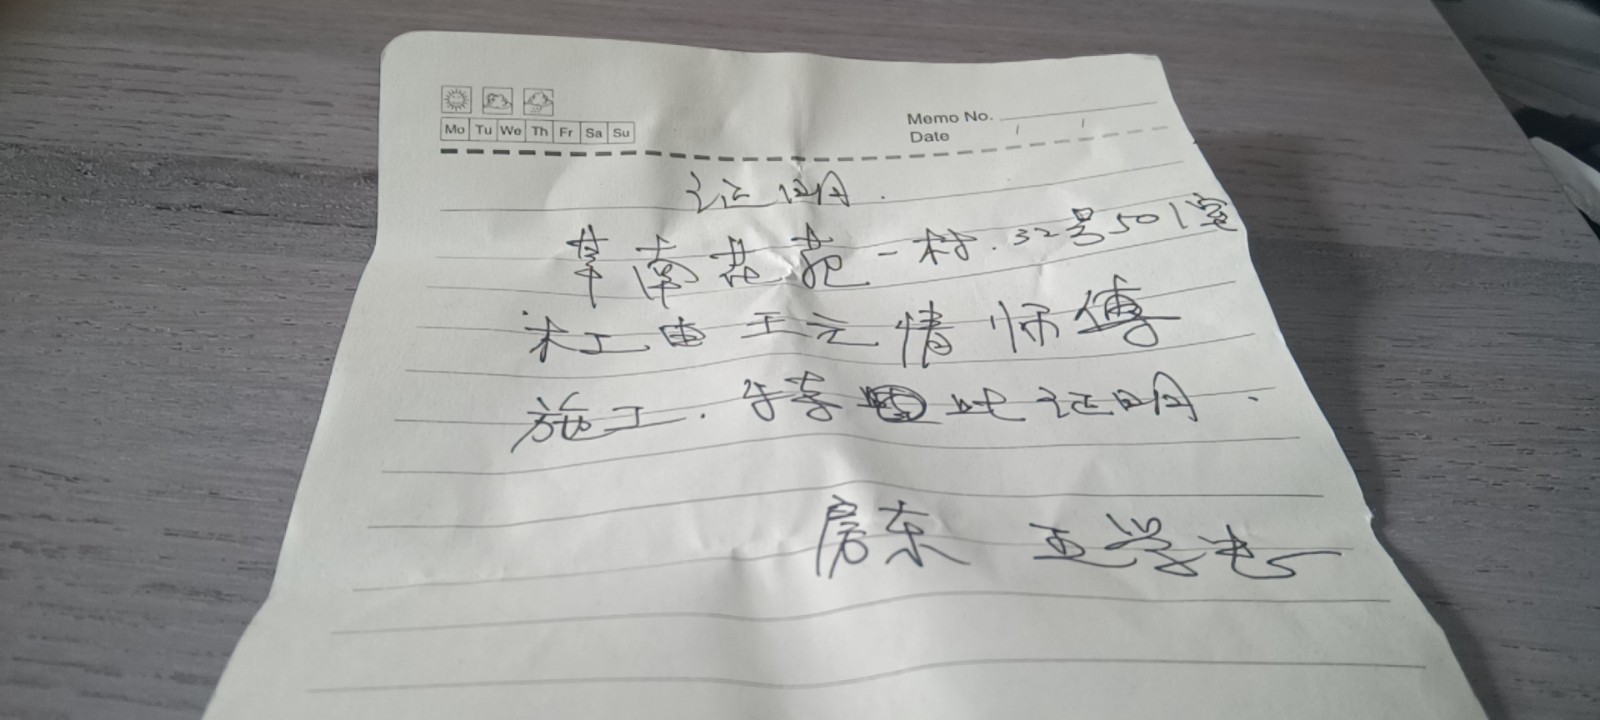 Mo Tu We Th Fr Sa Su
Memo No.
Date / /
证明.
南花苑一村.32号501室
木工由王元情师傅
施工.特此证明.
房东 王学